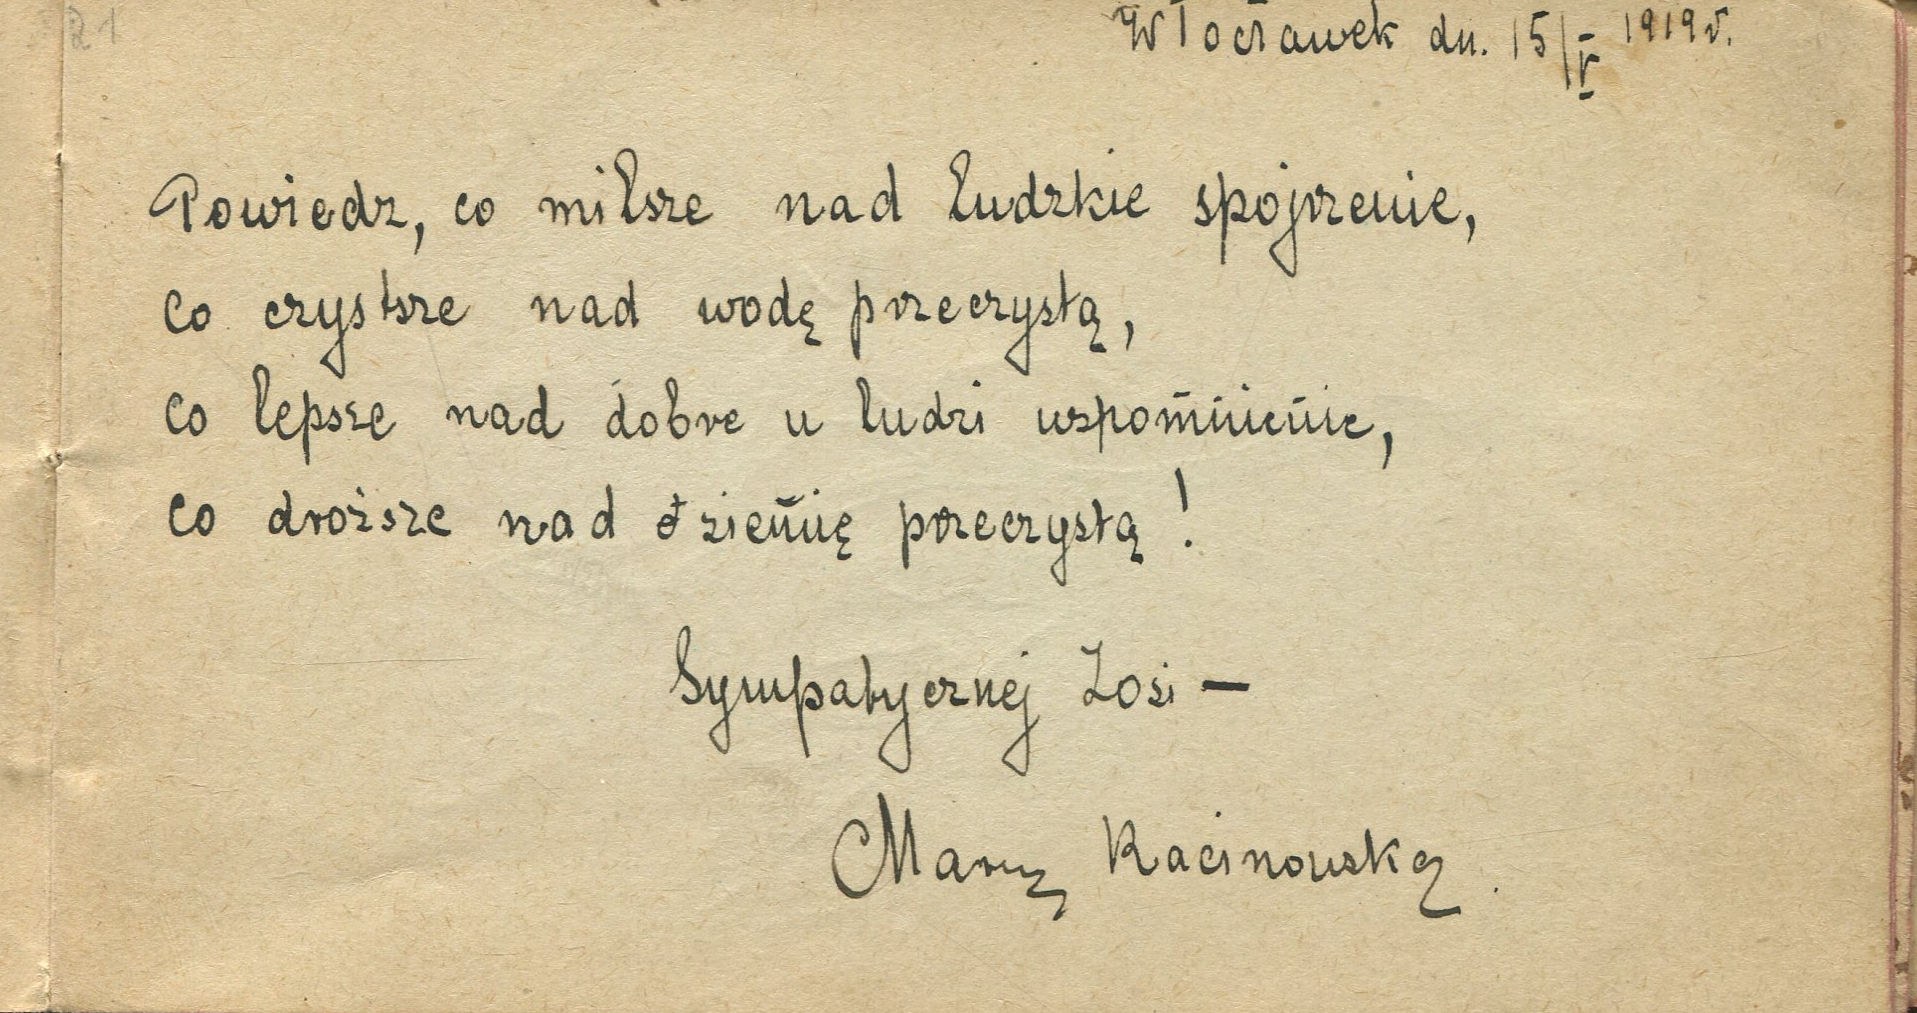 21
Włocławek dn. 15/V 1919 r.
Powiedz, co milsze nad ludzkie spojrzenie,
co czystsze nad wodę przeczystą,
co lepsze nad dobre u ludzi wspomnienie,
co droższe nad dziewnię przeczystą!
Sympatycznej Zosi –
Racinowska.